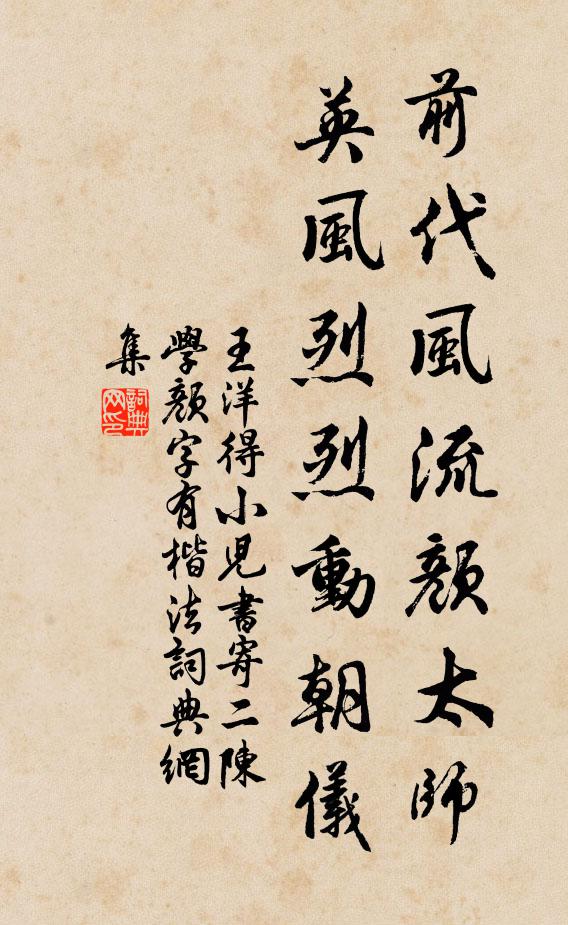 前代風流顏太師
英風烈烈動朝儀
王洋得小児書寄二陳
學顏字有楷法詞典網
集
詞典
网印